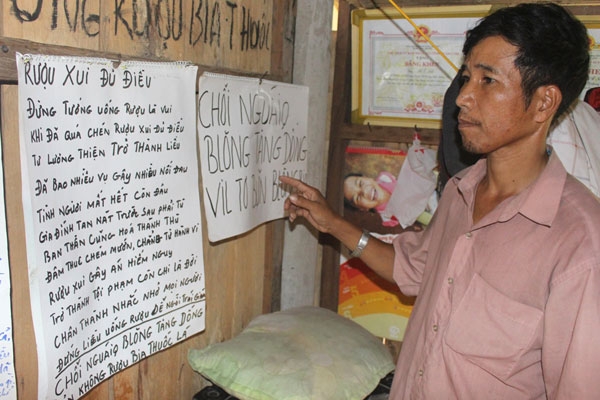 UỐNG RƯỢU BIA THUỐC
RƯỢU XUI ĐỦ ĐIỀU
ĐỪNG TƯỞNG UỐNG RƯỢU LÀ VUI
KHI ĐÃ QUÁ CHÉN RƯỢU XUI ĐỦ ĐIỀU
TỪ LƯƠNG THIỆN TRỞ THÀNH LIỀU
ĐÃ BAO NHIÊU VỤ GÂY NHIỀU NỖI ĐAU
TÌNH NGƯỜI MẤT HẾT CÒN ĐÂU
GIA ĐÌNH TAN NÁT TRƯỚC SAU PHẢI TÙ
BẠN THÂN CŨNG HOÁ THÀNH THÙ
ĐÂM THUÊ CHÉM MƯỚN, CHẲNG TỪ HÀNH VI
RƯỢU XUI GÂY ÁN HIỂM NGUY
TRỞ THÀNH TỘI PHẠM CÒN CHI LÀ ĐỜI
CHÂN THÀNH NHẮC NHỞ MỌI NGƯỜI
ĐỪNG LIỀU UỐNG RƯỢU ĐỂ NGỒI TRẠI GIAM
CHỐI NGUAIQ BLÔNG TĂNG DÔNG
KHÔNG RƯỢU BIA THUỐC LÁ
CHỐI NGUAIQ
BLÔNG TĂNG DÔNG
VIL
BẰNG KHEN